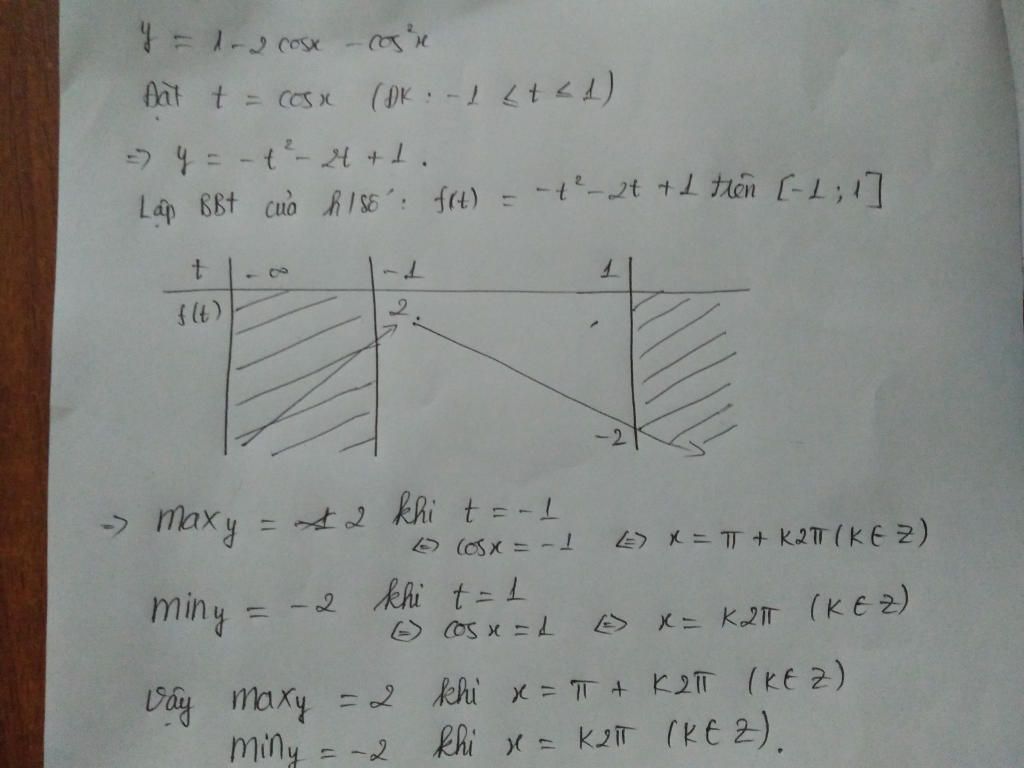 y = 1 - 2 cosx - cos²x
Đặt t = cosx (ĐK : -1 ≤ t ≤ 1)
=> y = -t² - 2t + 1 .
Lập BBt của h/số : f(t) = -t² - 2t + 1 trên [-1 ; 1]
t -∞ -1 1
f(t) 2
-2
=> max y = 2 khi t = -1
<=> cosx = -1 <=> x = π + k2π (k ∈ Z)
min y = -2 khi t = 1
<=> cosx = 1 <=> x = k2π (k ∈ Z)
Vậy max y = 2 khi x = π + k2π (k ∈ Z)
min y = -2 khi x = k2π (k ∈ Z).